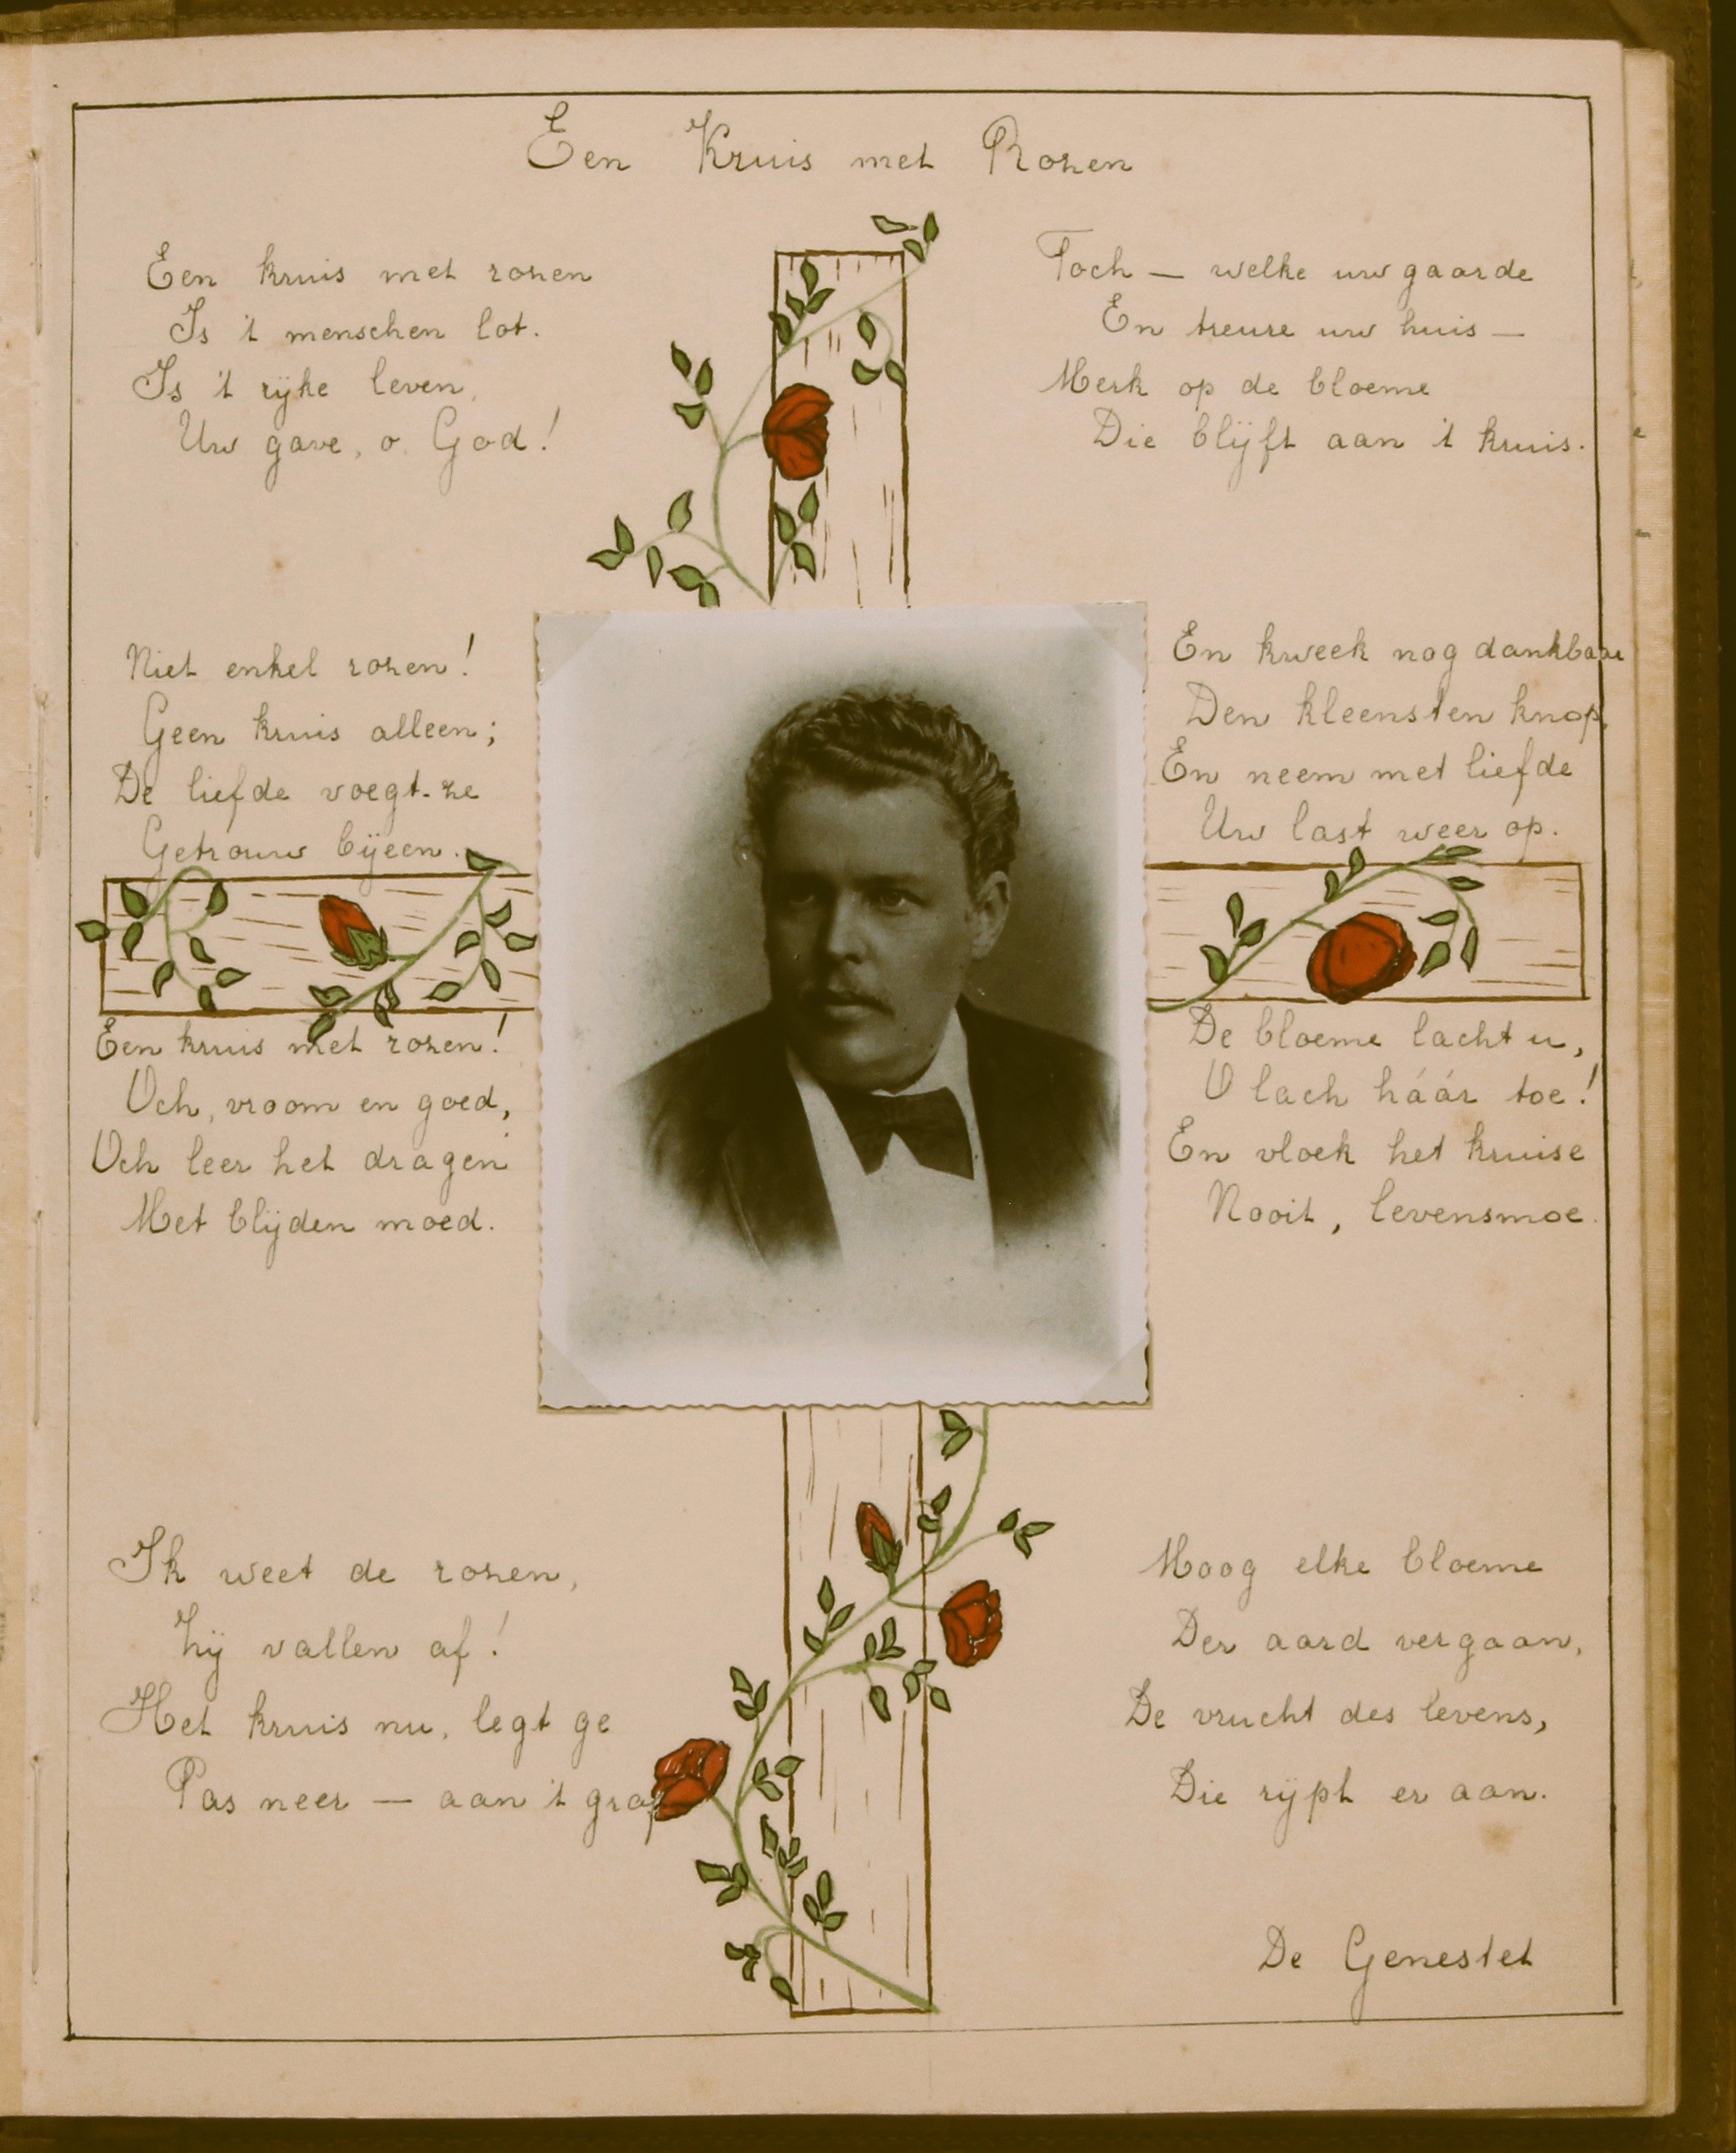 Een Kruis met Rozen
Een kruis met rozen
Is 't menschen lot.
Is 't rijke leven,
Uw gave, o God!
Niet enkel rozen!
Geen kruis alleen;
De liefde voegt-ze
Getrouw bijeen.
Een kruis met rozen!
Och, vroom en goed,
Och leer het dragen
Met blijden moed.
Ik weet de rozen,
Zij vallen af!
Het kruis nu, legt ge
Pas neer — aan 't graf
Toch — welke uw gaarde
En treure uw huis —
Merk op de bloeme
Die blijft aan 't kruis.
En kweek nog dankbaar
Den kleensten knop,
En neem met liefde
Uw last weer op.
De bloeme lacht u,
O lach háár toe!
En vloek het kruise
Nooit, levensmoe.
Moog elke bloeme
Der aard vergaan,
De vrucht des levens,
Die rijpt er aan.
De Genestet